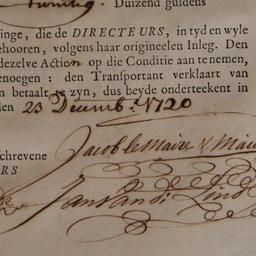 Twintig. Duizend guldens
inge, die de DIRECTEURS, in tyd en wyle
ehooren, volgens haar origineelen Inleg. Den
dezelve Actien op die Conditie aan te nemen,
enoegen: den Transportant verklaart van
n betaalt te zyn, dus beyde onderteekent in
den 23 Decemb: 1720
Jacob le Maire &
schrevene
RS
Jan van di Lind